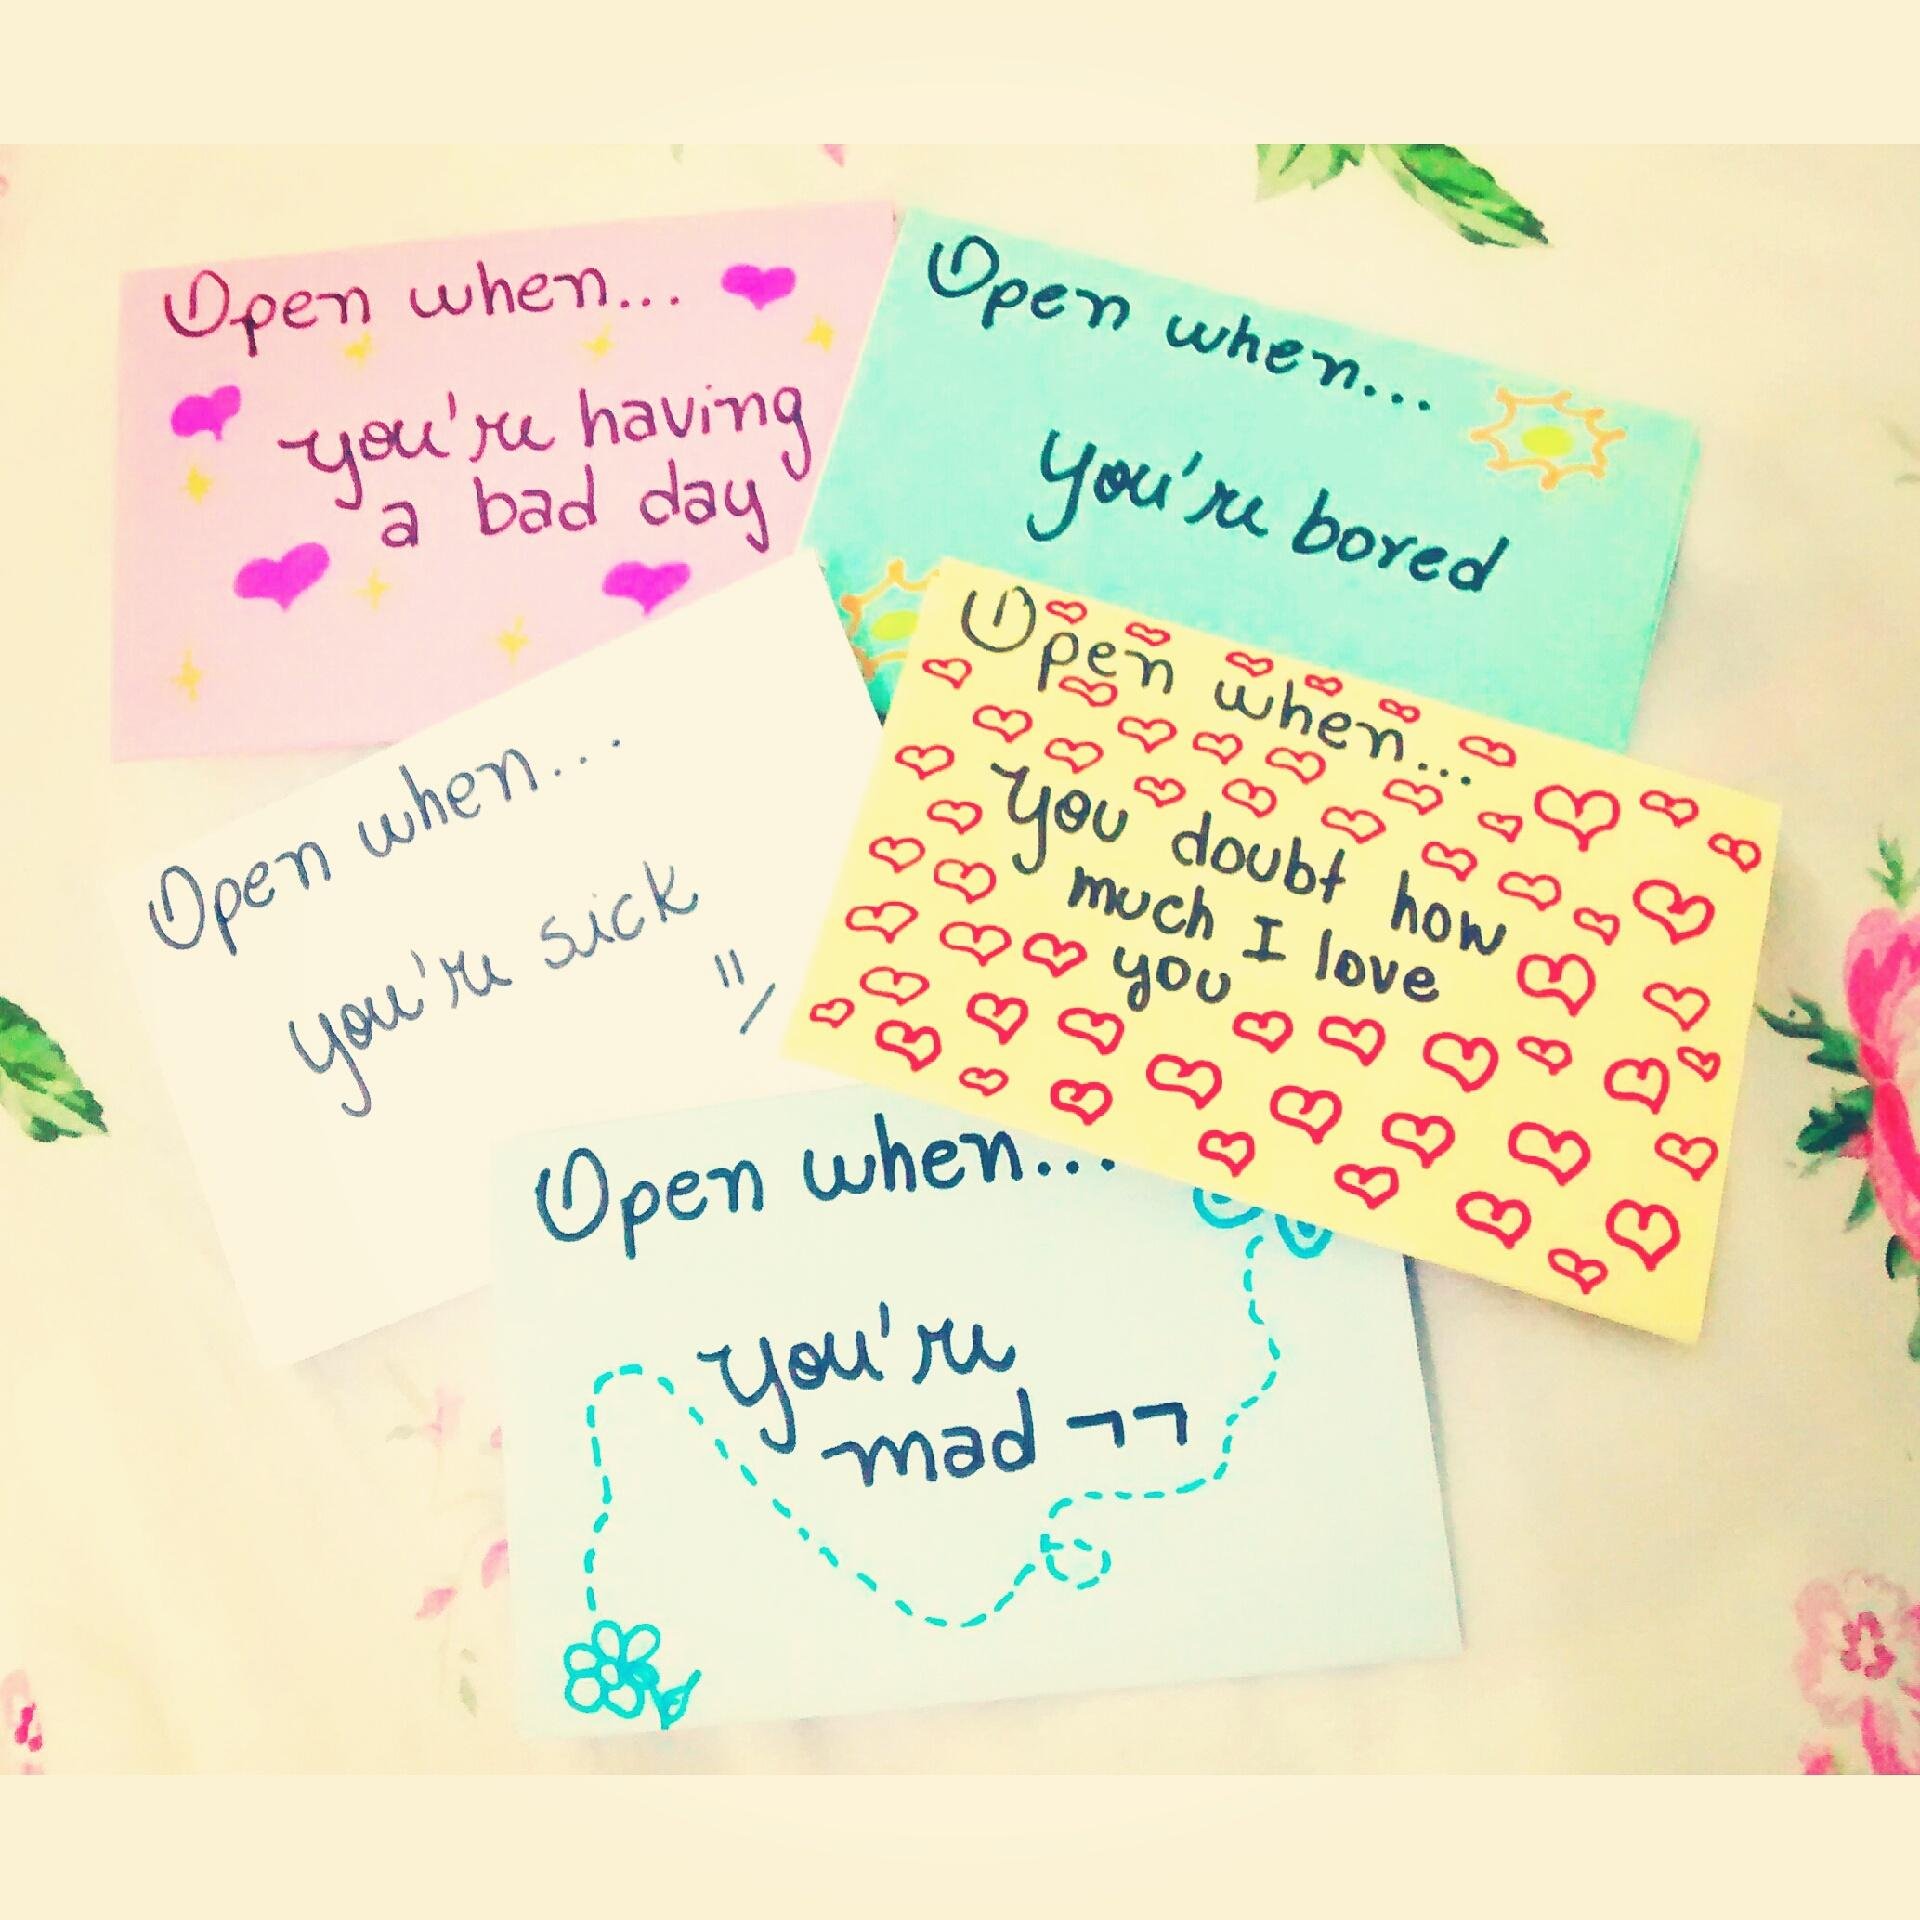 Open when...
you're having
a bad day
Open when...
you're bored
Open when...
you're sick
Open when...
You doubt how
much I love
you
Open when...
you're
mad ¬¬